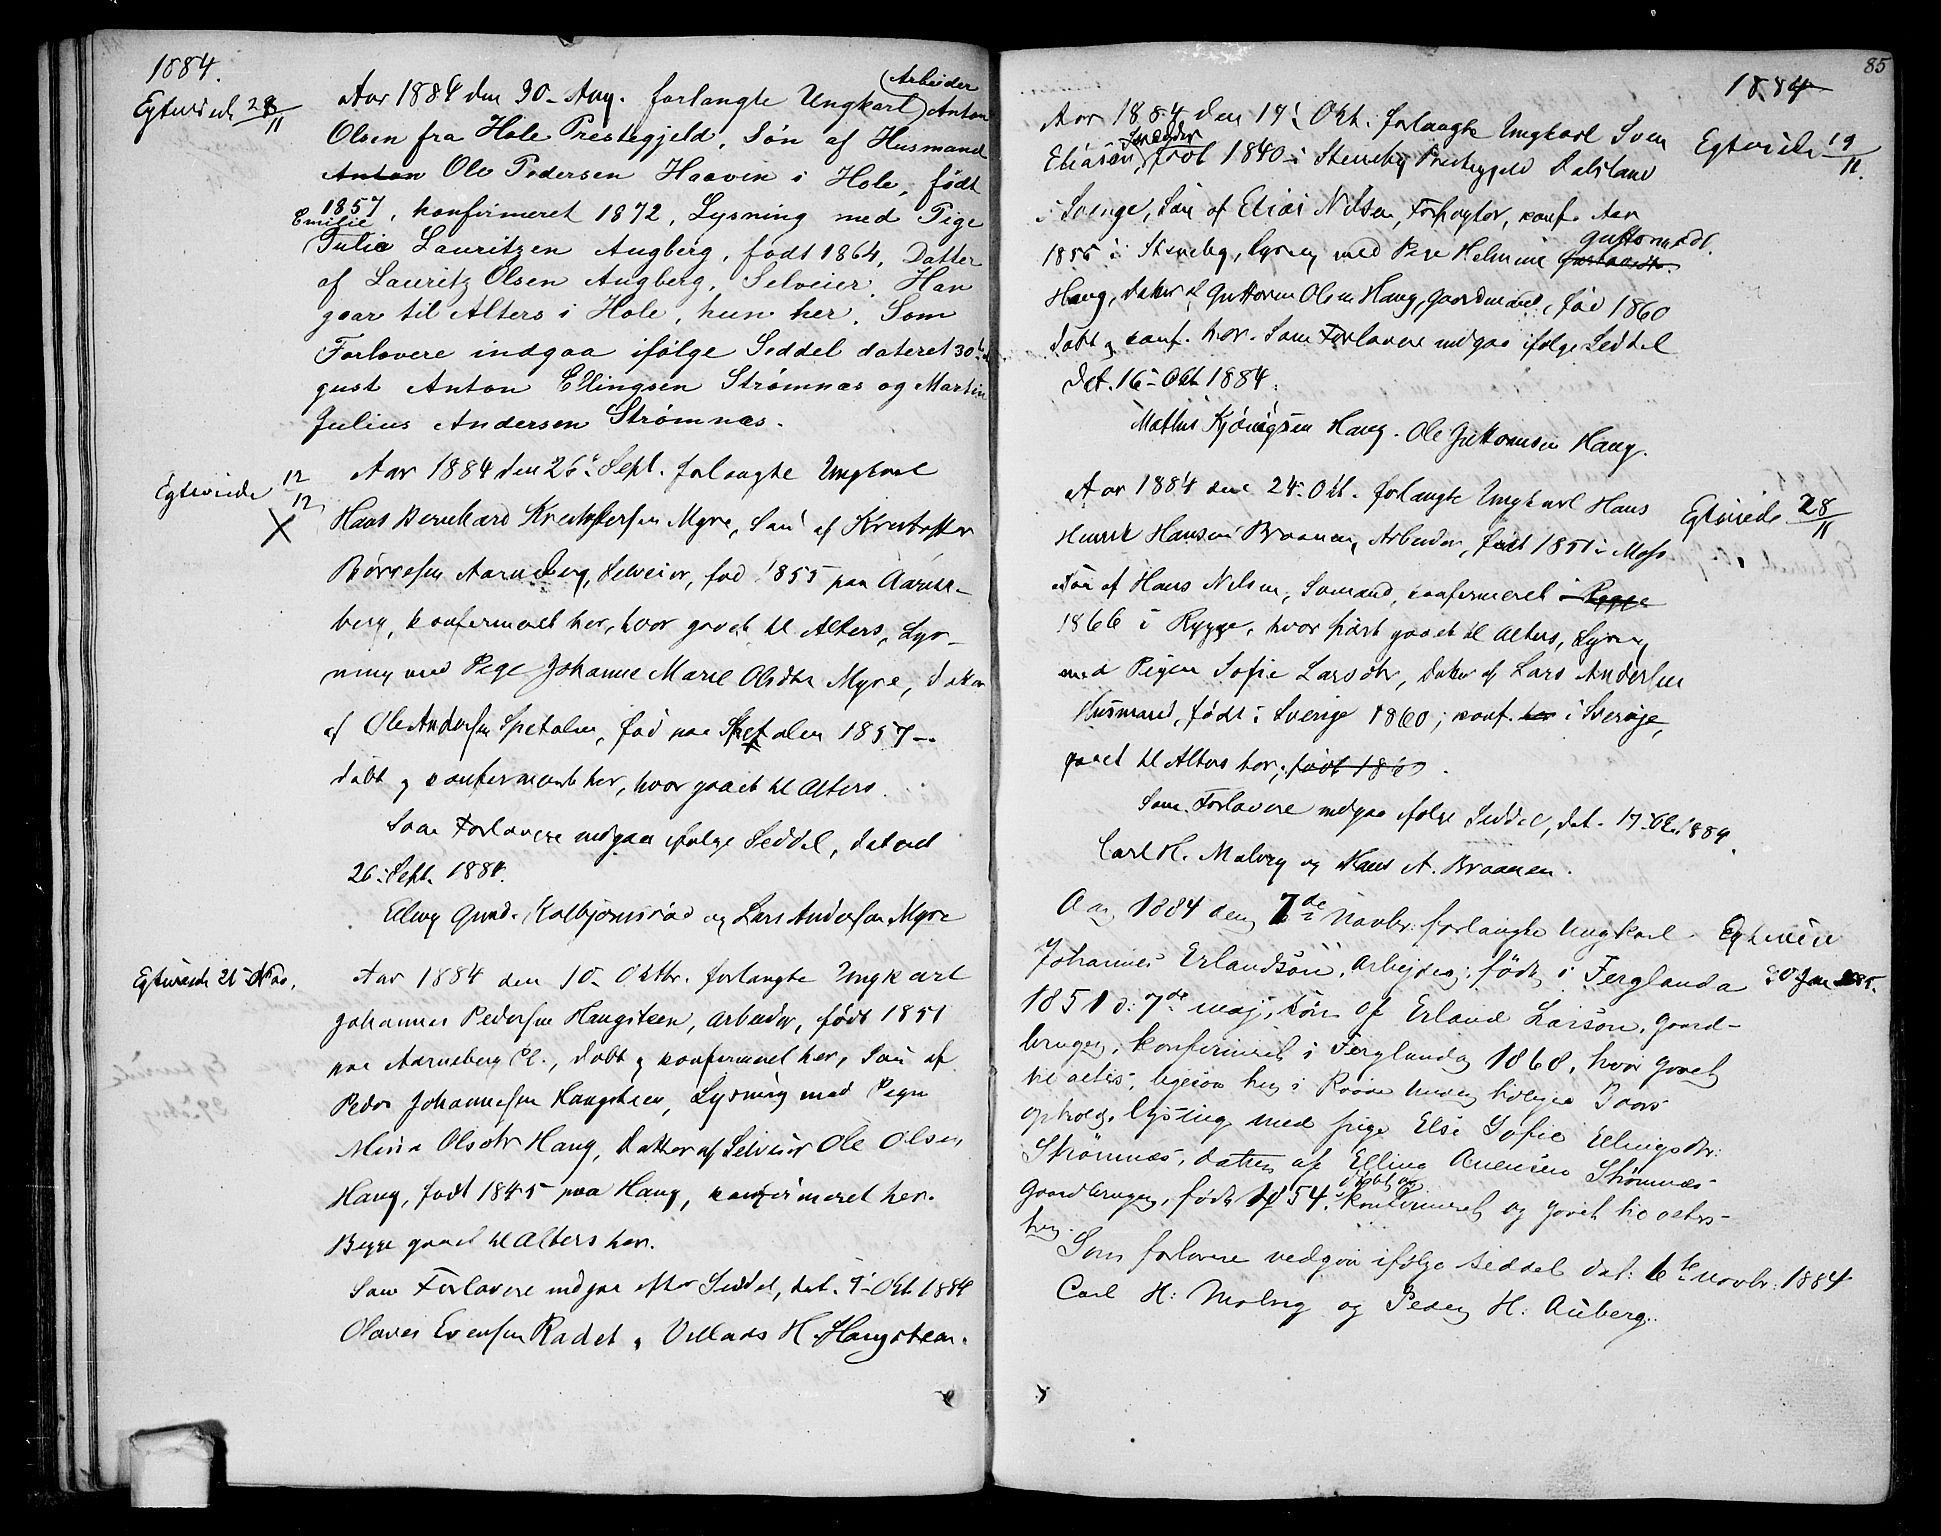 1884.
Egteviede 28/11
Aar 1884 den 30- Aug. forlangte Ungkarl Arbeider Anton
Olsen fra Hole Prestegjeld, Søn af Husmand
Anton Ole Pedersen Haavin i Hole, født
1857, konfirmeret 1872, Lysning med Pige
Emilie
Julie Lauritzen Augberg, født 1864, Datter
af Lauritz Olsen Augberg, Selveier. Han
gaar til Alters i Hole, hun her. Som
Forlovere indgaa ifølge Seddel dateret 30te
gust Anton Ellingsen Strømnæs og Martin
Julius Andersen Strømnæs.
Egteviede 12/12
X
Aar 1884 den 26- Sept. forlangte Ungkarl
Hans Bernhard Kristoffersen Myre, Søn af Kristoffer
Børresen Aarneberg, Selveier, fød 1855 paa Aarne-
berg, konfermeret her, hvor gaaet til Alters, Lys-
ning med Pige Johanne Marie Olsdtr Myre, Datter
af Ole Andersen Spetalen, fød paa Spetalen 1857-
døbt og confermeret her, hvor gaaet til Alters.
Som Forlovere indgaa ifølge Seddel, dateret
26- Sept. 1884.
Elling Gund. Kolbjørnsrød og Lars Andersen Myre
Egteviede 21- Nov.
Aar 1884 den 10- Oktbr. forlangte Ungkarl
Johannes Pedersen Haugsteen, Arbeider, født 1851
paa Aarneberg Pl., døbt og konfermeret her, Søn af
Peder Johannesen Haugsteen, Lysning med Pigen
Mina Olsdtr Haug, Datter af Selveier Ole Olsen
Haug, født 1845 paa Haug, konfirmeret her.
Begge gaaet til Alters her.
Som Forlovere indgaa efter Seddel, dat. 9- Okt 1884
Olaves Evensen Radet og Villads H. Haugsteen.
85
1884
Aar 1884 den 17- Okt. forlangte Ungkarl Sven
Skrædder
Eliasen, født 1840 i Steneby Prestegjeld Dalsland
Egteviede 19/11.
i Sverige, Søn af Elias Nilsen, Forpagter, konf. Aar
1855 i Steneby, Lysning med Pige Helmine Guttormsdt.
Haug, Datter af Guttorm Olsen Haug, Gaardmand, fød 1860
døbt og konf. her. Som Forlovere indgaa ifølge Seddel
dat. 16- Okt 1884.
Mathis Kjønigsen Haug. Ole Guttormsen Haug.
Aar 1884 den 24- Okt. forlangte Ungkarl Hans
Egteviede 28/11
Henrik Hansen Braanen, Arbeider, født 1851 i Moss
Søn af Hans Nilsen, Sømand, confermeret i Rygge
1866 i Rygge, hvor først gaaet til Alters, Lysning
med Pigen Sofie Larsdtr, Datter af Lars Andersen
Husmand, født i Sverige 1860, konf. her i Sverige,
gaaet til Alters her, født 1860.
Som Forlovere indgaa ifølge Seddel, dat. 17- Okt. 1884.
Carl H. Malvig og Hans A. Braanen.
Aar 1884 den 7de Novbr. forlangte Ungkarl
Egteviede
30 Jan 1885.
Johannes Erlandsøn, Arbejder, født i Ferglanda
1851 d: 7de maj, Søn af Erland Larsøn, Gaard-
bruger, konfirmeret i Ferglanda 1868, hvor gaaet
til alters, ligesom her i Raade under tidligere Aars
ophold. Lysning med pige Else Sofie Ellingsdtr.
Strømnæs, datter af Elling Strømnæs
døbt og
Gaardbruger, født 1854, konfirmeret og gaaet til alters
her.
Som forlovere vedgaa ifølge Seddel dat: 6te Novbr. 1884
Carl H: Malvig og Peder H: Auberg.